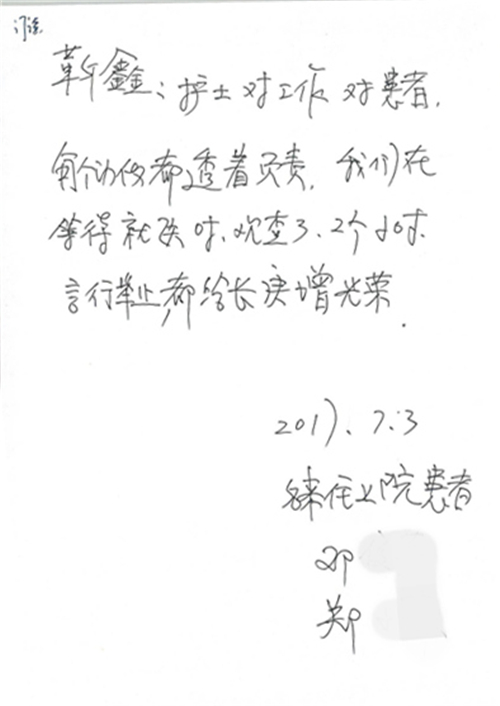 靳鑫:护士对工作对患者,
每个动作都透着负责.我们在
等得就医时.观查了.2个小时.
言行举止,都给长庚增光荣.
2017.7.3
来住上院患者
邓
郑